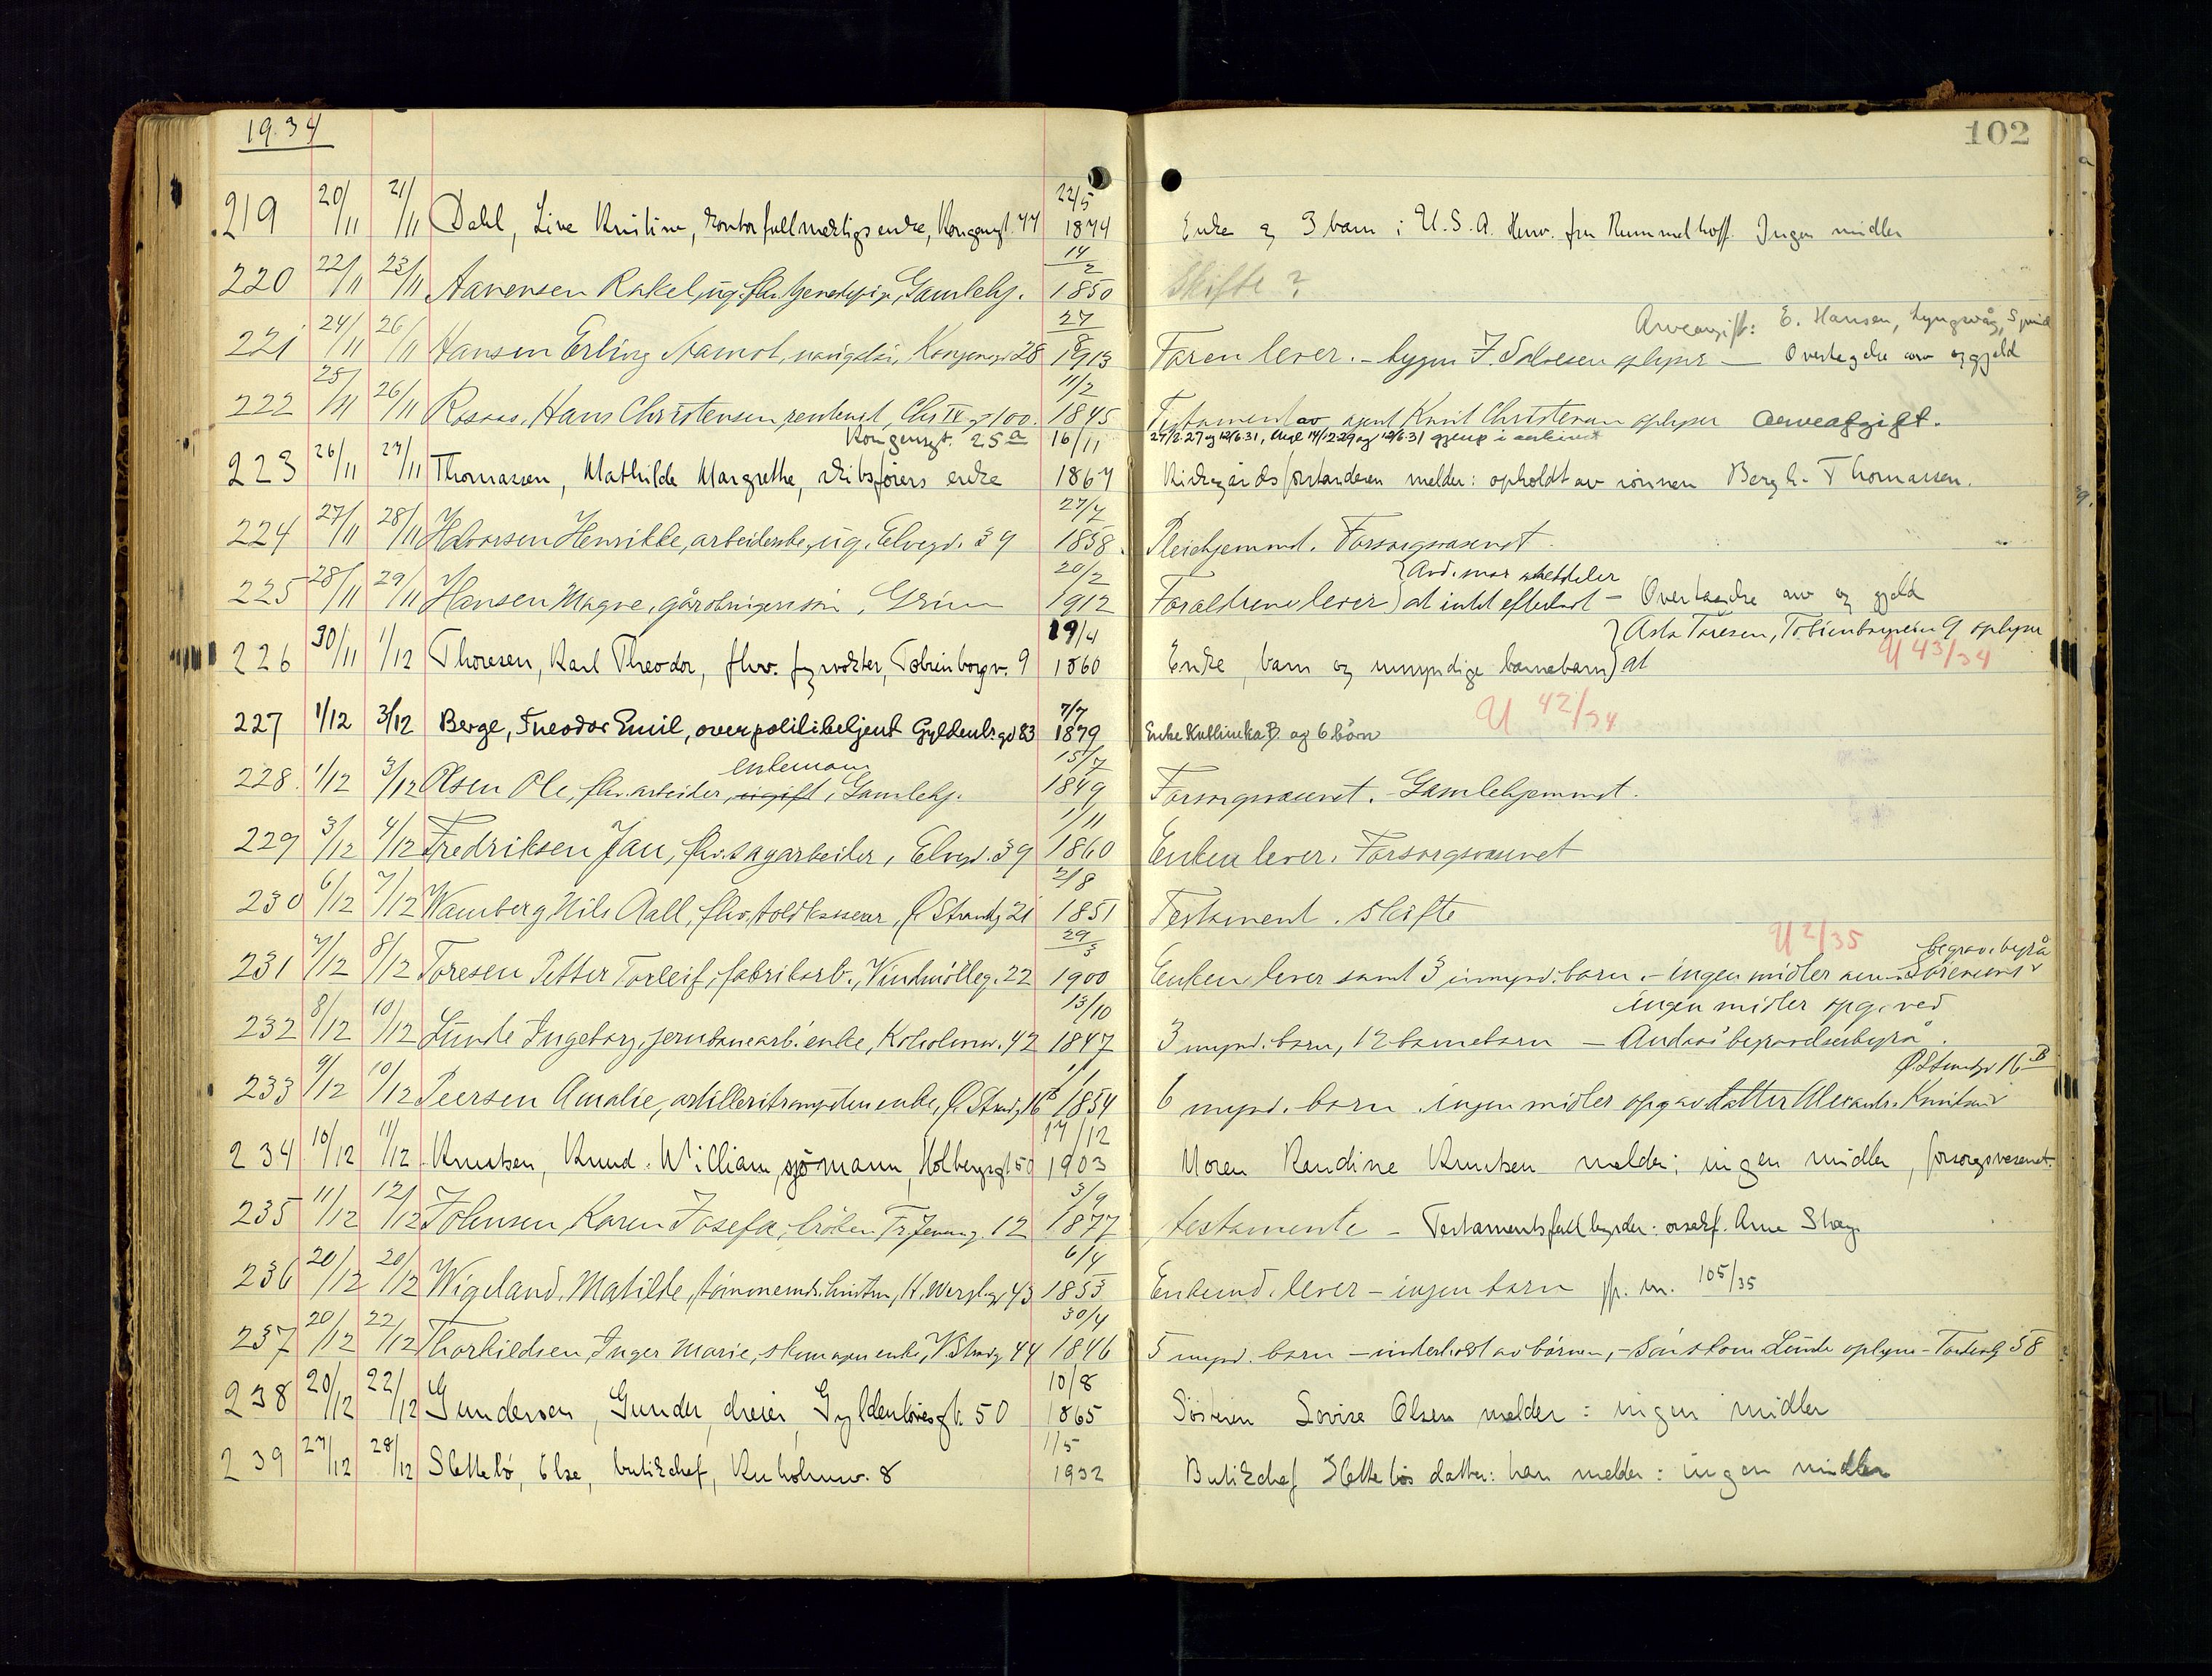 1934
102
219 20/11 21/11 Dahl, Live Kristine, kontorfullmektigs enke, Kongensgt. 44 22/5 1874 Enke og 3 barn i U.S.A. Henv. fru Rummelhoff. Ingen midler
220 22/11 23/11 Aanensen Rakel, ug. fhv. Gamlehj. 14/2 1850 Skifte?
Arveavgift: E. Hansen, Lyngsvåg,
221 24/11 26/11 Hansen Erling Aamot, Kongensgt 28 27/8 1913 Faren lever. - J. Salvesen oplyser - Overtagelse arv og gjeld
222 25/11 26/11 Rosaas, Hans Christensen, Chr IV gt 100. 11/2 1845 Testament av agent Knut Christensen oplyser arveafgift.
Kongensgt. 25a
27/2 27 og 12/6 31,
223 26/11 27/11 Thomassen, Mathilde Margrethe, skibsførers enke 16/11 1867 Kirkegårdsforstanderen melder: opholdt av sønnen Bergh. Thomassen.
224 27/11 28/11 Halvorsen Henrikke, arbeiderske, ug. Elvegd. 39 27/7 1858. Pleiehjemmet. Forsorgsvæsenet
225 28/11 29/11 Hansen Magne, gårdbrugersøn, Grim 20/2 1912 Forældrene lever) at intet efterladt - Overtagelse arv og gjeld
226 30/11 1/12 Thoresen, Karl Theodor, fhv. fyrvokter, Tobienborgv. 9 19/4 1860 Enke, barn og umyndige barnebarn) at
Asta Toresen, Tobienborgvein 9 oplyser
U 43/34
227 1/12 3/12 Berge, Theodor Emil, overpolitibetjent Gyldenl.gd 83 7/7 1879 Enke Kathinka B. og 6 børn
U 42/34
enkemann
228. 1/12 3/12 Olsen Ole, fhv. arbeider, ugift, Gamlehj. 15/7 1849 Forsorgsvæsenet. - Gamlehjemmet.
229 3/12 4/12 Fredriksen Jan, fhv. sagarbeider, Elvegd. 39 1/11 1860 Enken lever. Forsorgsvæsenet
230 6/12 7/12 Wamberg Nils Aall, fhv. toldkasserer, Ø Strandg 21 2/8 1851 Testament. Skifte
U 2/35
231 7/12 8/12 Toresen Petter Torleif, fabrikarb., Vindmølleg. 22 29/3 1900 Enken lever samt 3 umynd. barn. - ingen midler
begrav. byrå
232 8/12 10/12 Lunde Ingeborg, jernbanearb. enke, Koholmv. 42 13/10 1847 3 mynd. barn, 12 barnebarn - Andås' begravelsesbyrå.
ingen midler opg. ved
Ø Strandgd 16 B
233 9/12 10/12 Peersen Amalie, enke, Ø Strandg 16 B 1/1 1854 6 mynd. barn. ingen midler opg av datter Alexandr. Knutsen
234 10/12 11/12 Knutsen, Knud William, sjømann, Holbergsgt 50 17/12 1903 Moren Randine Knutsen melder: ingen midler, forsorgsvesenet.
235 11/12 12/12 Johnsen, Karen Josefa, frøken Tr. 12 3/9 1877 testamente - Testamentsfullbyrder: orsakf. Arne Skau
236 20/12 20/12 Wigeland, Matilde, tømmermds. hustru, H. Wergl.g. 43 6/4 1853 Enkemd. lever - ingen barn 105/35
237 20/12 22/12 Thorkildsen, Inger Marie, skomager enke, V. Strandg 44 30/4 1846 5 mynd. barn - underholdt av børnene, - Lunde oplyser - 58
238 20/12 22/12 Gundersen, Gunder, dreier, Gyldenløvesgt. 50 10/8 1865 Søsteren Lovise Olsen melder: ingen midler
239 27/12 28/12 Slettebø, Else, butikchef, Kuholmsv. 8 11/5 1932 Butikchef Slettebøs datter: han melder: ingen midler